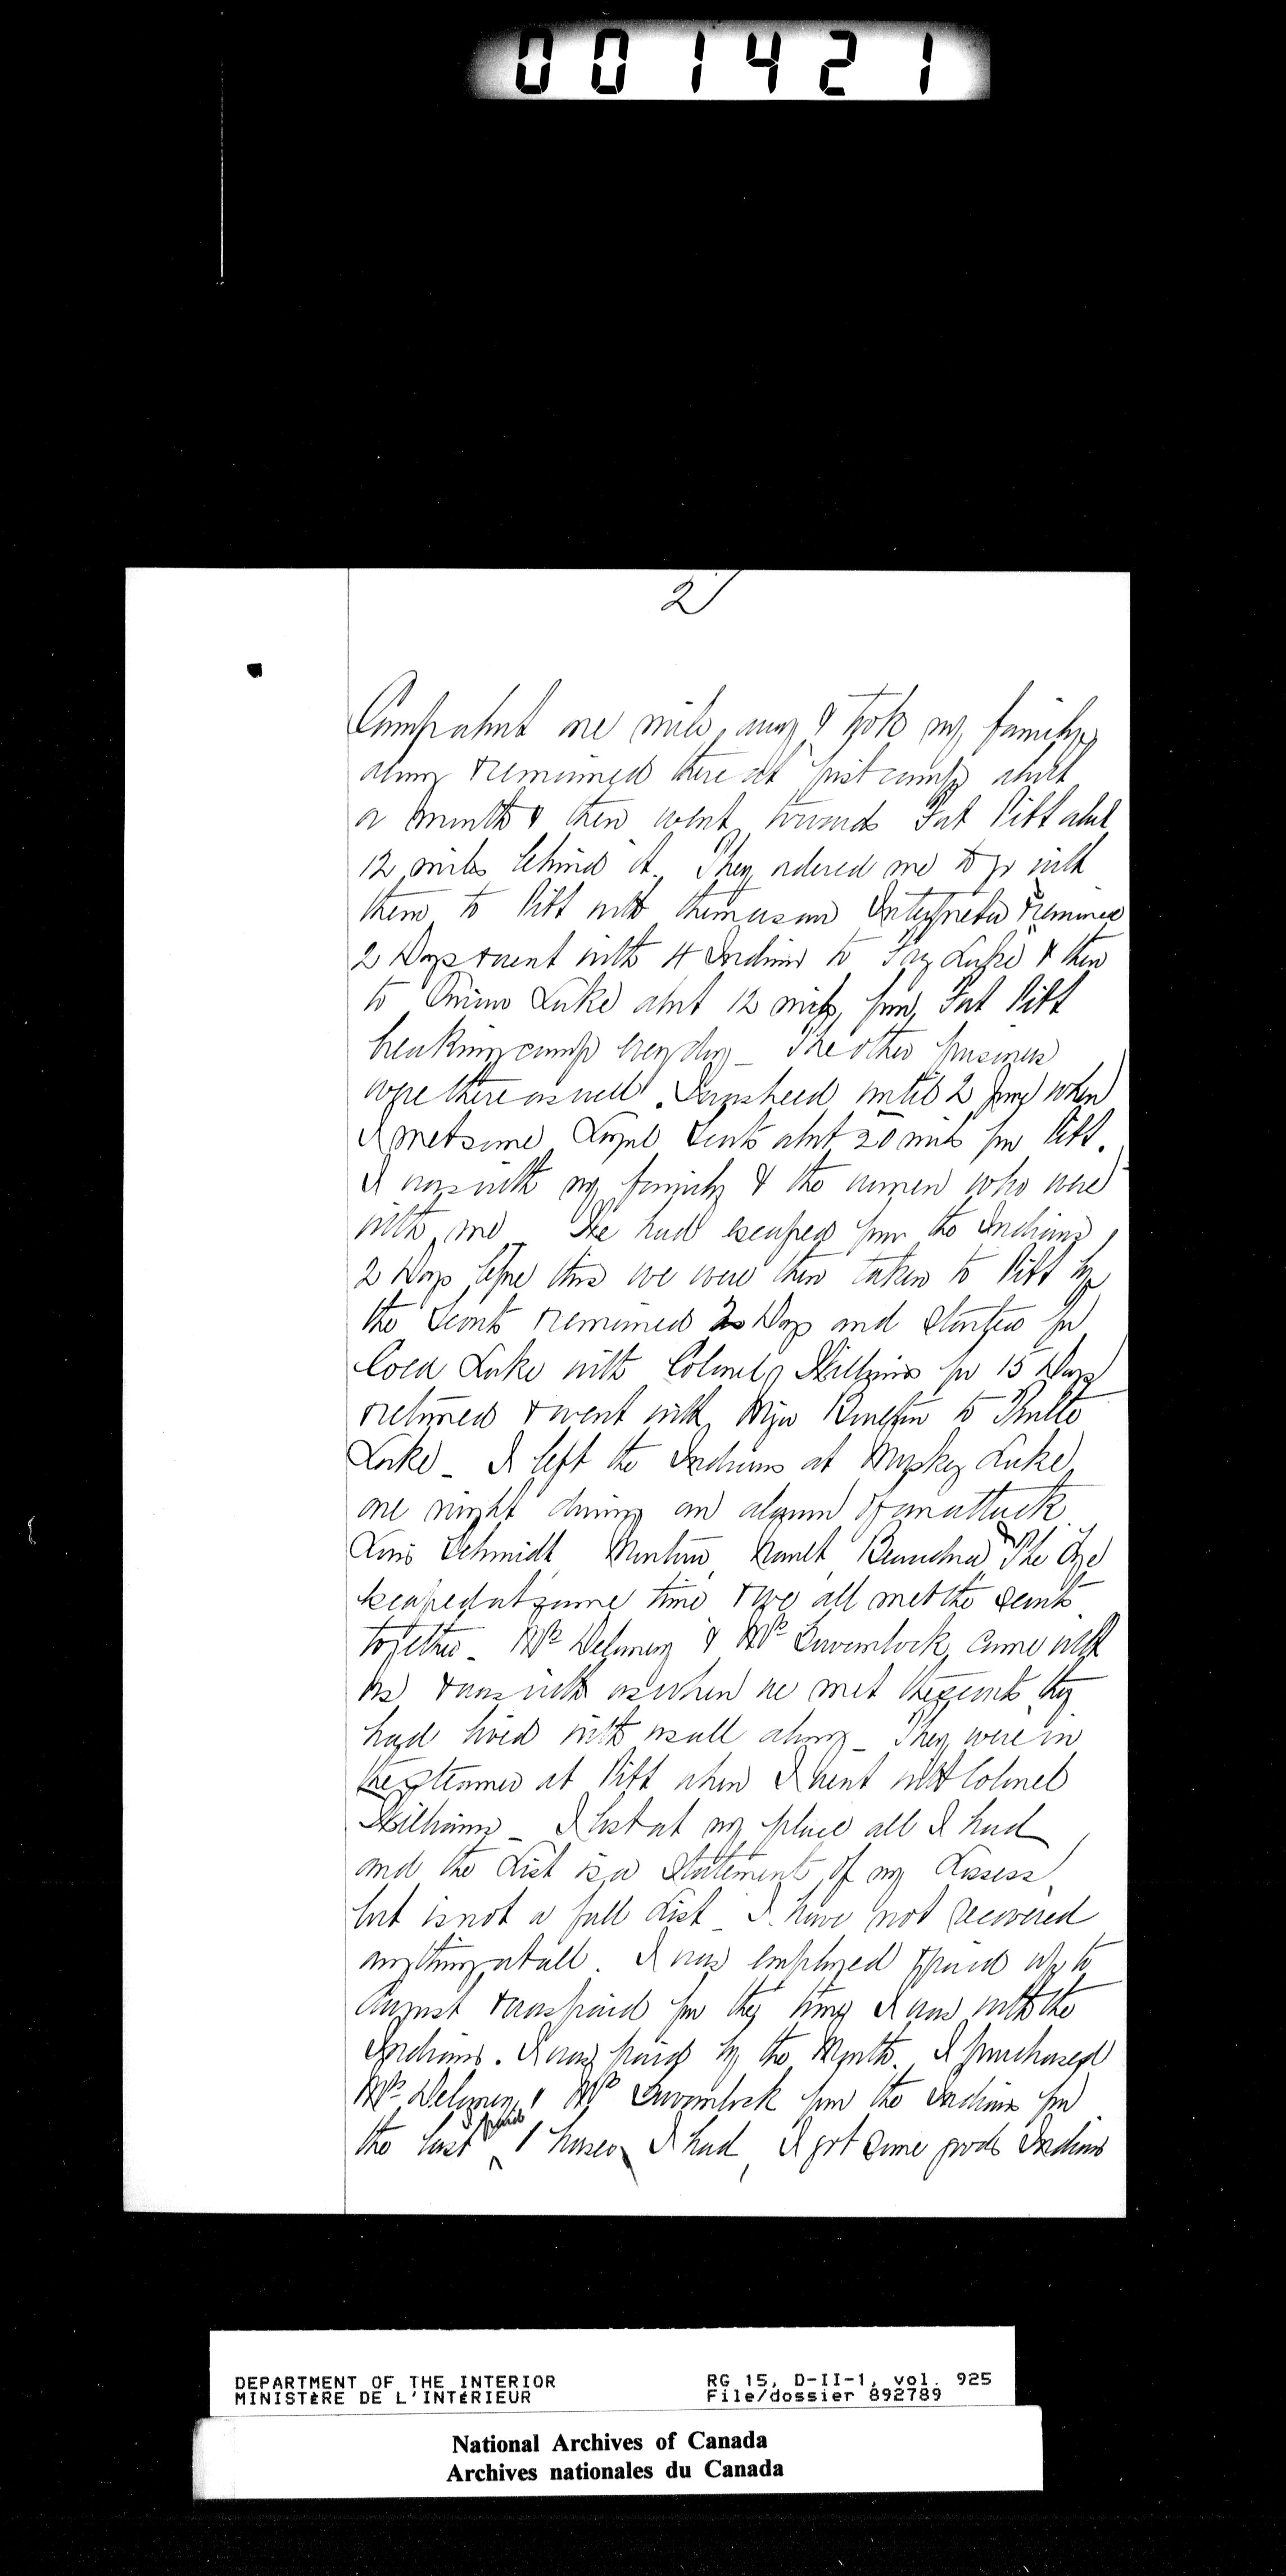 001421
2
Camp about one mile away & took my family
along & remained there at first camp about
a month & then went towards Fort Pitt about
12 miles behind it. They ordered me to go with
them to Pitt with them as an Interpreter & I remained
2 Days & went with 4 Indians to Lake & then
to Onion Lake about 12 miles from Fort Pitt
breaking camp every day _ The other prisoners
were there as well. until 2 June when
I met some Loyal Scouts about 20 miles from Pitt.
I was with my family & the women who were
with me _ We had escaped from the Indians
2 Days before this we were then taken to Pitt by
the Scouts remained 2 Days and started for
Cold Lake with Colonel Williams for 15 Days
returned & went with Major to
Lake _ I left the Indians at Muskeg Lake
one night during an alarm of an attack
Louis Schmidt the
escaped at same time & we all met the scouts
together _ Mrs Delaney & Mrs Gowanlock came with
us & was with us when we met the scouts they
had lived with us all along _ They were in
the steamer at Pitt when I went with Colonel
Williams _ I lost at my place all I had
and the List is a Statement of my Lossess
but is not a full List _ I have not recovered
anything at all. I was employed & paid up to
August & was paid for the time I was with the
Indians. I was paid by the Month. I purchased
Mrs Delaney & Mrs Gowanlock from the Indians for
the last I paid 1 horse I had, I got some goods Indians
DEPARTMENT OF THE INTERIOR RG 15, D-II-1, vol. 925
MINISTÈRE DE L'INTÉRIEUR File/dossier 892789
National Archives of Canada
Archives nationales du Canada